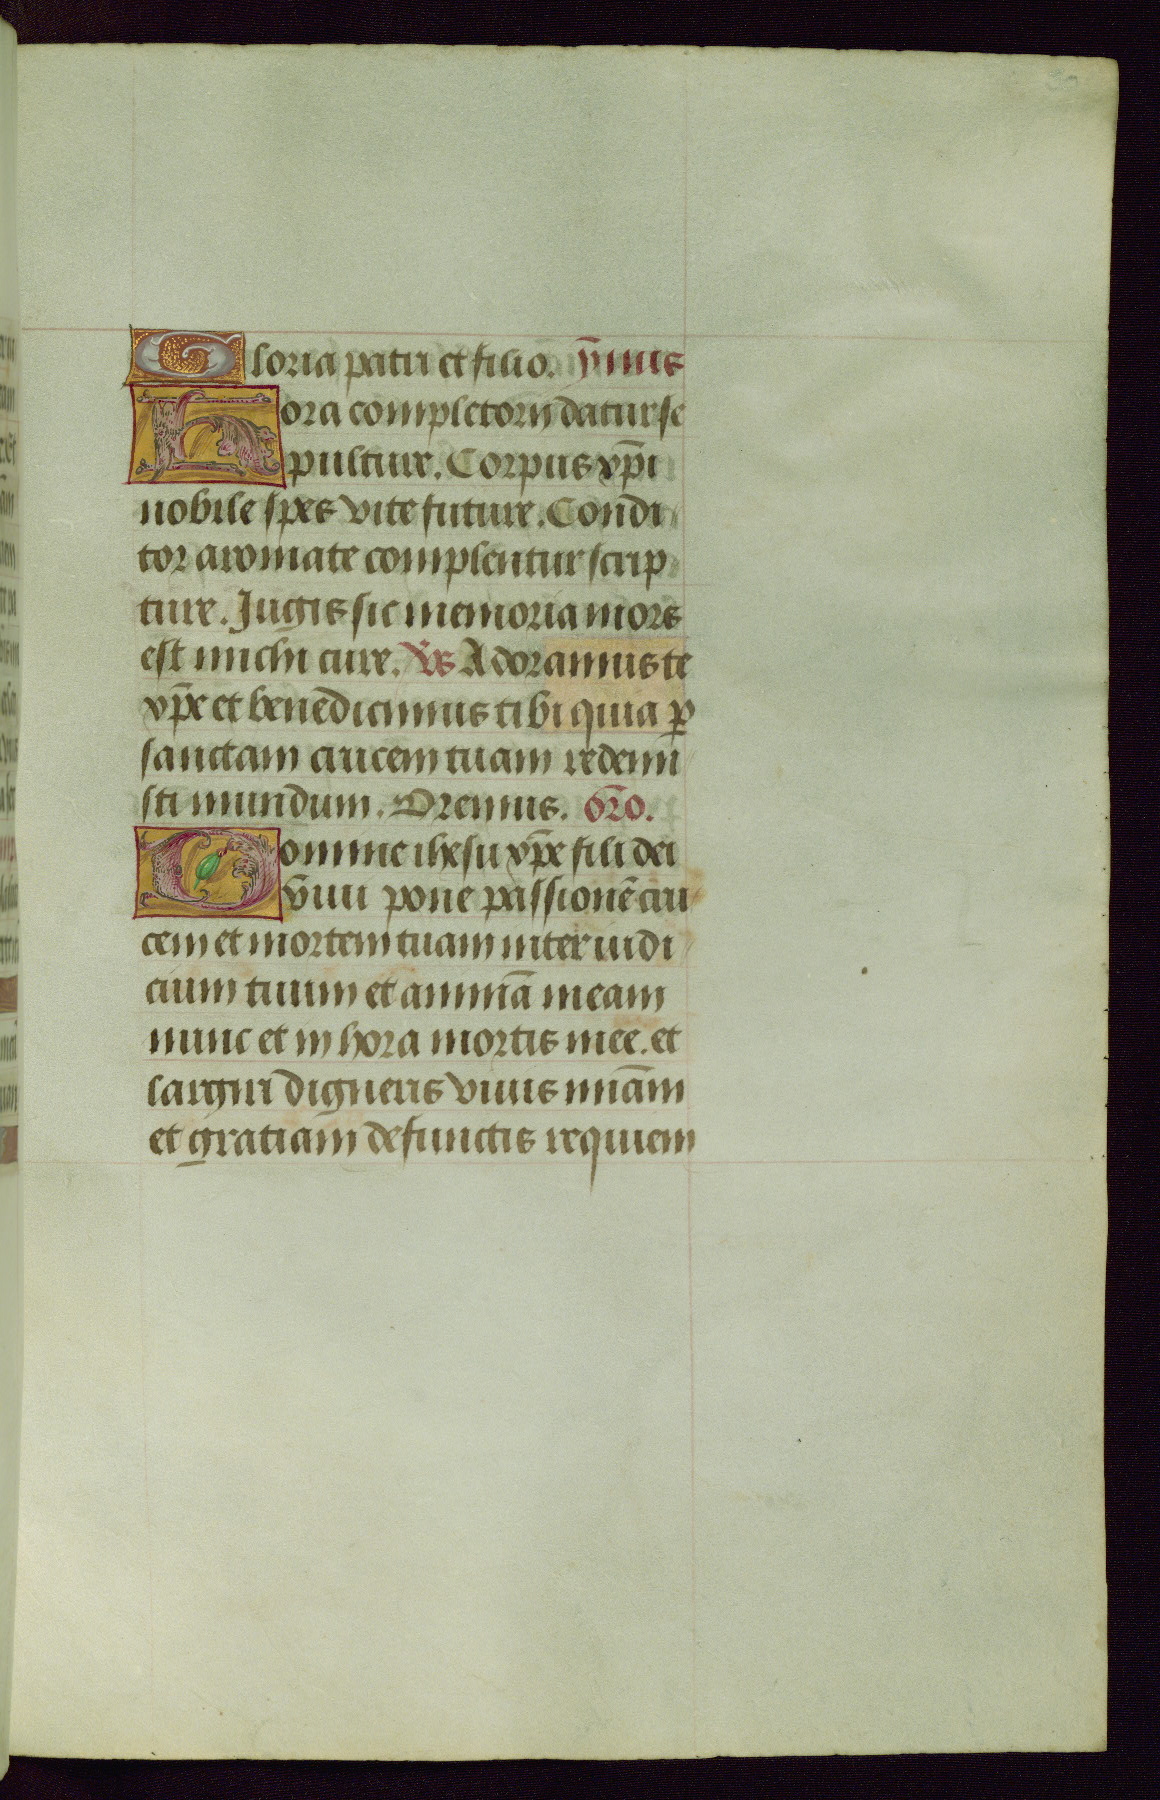 Gloria patri et filio. ȳmnus
Hora completorij datur se
pulture. Corpus xp̄i
nobile spes vite future. Condi
tor aromate complentur scrip
ture. Jugis sic memoria mors
est michi cure. V̄s Adoramus te
xp̄e et benēdicimus tibi quia ꝑ
sanctam crucem tuam redemi
sti mundum. Oremus. Or̄o.
Domine ihesu xp̄e fili dei
viui pone passionē cru
cem et mortem tuam inter iudi
cium tuum et animā meam
nunc et in hora mortis mee. et
largiri digneris viuis mīam
et gratiam defunctis requiem